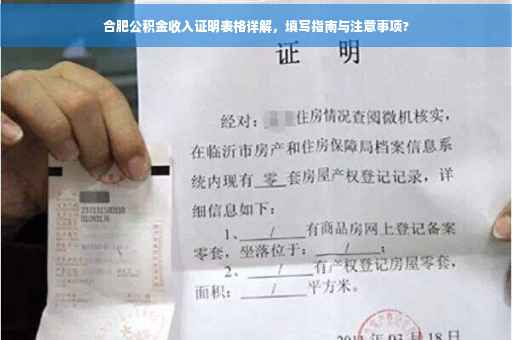 合肥公积金收入证明表格详解，填写指南与注意事项?
证 明
经对：住房情况查阅微机核实，
在临沂市房产和住房保障局档案信息系
统内现有 零 套房屋产权登记记录，详
细信息如下：
1、 / 有商品房网上登记备案
零套，坐落位于： / ；
2、 / 有产权登记房屋零套，
面积： / 平方米。
03月18日